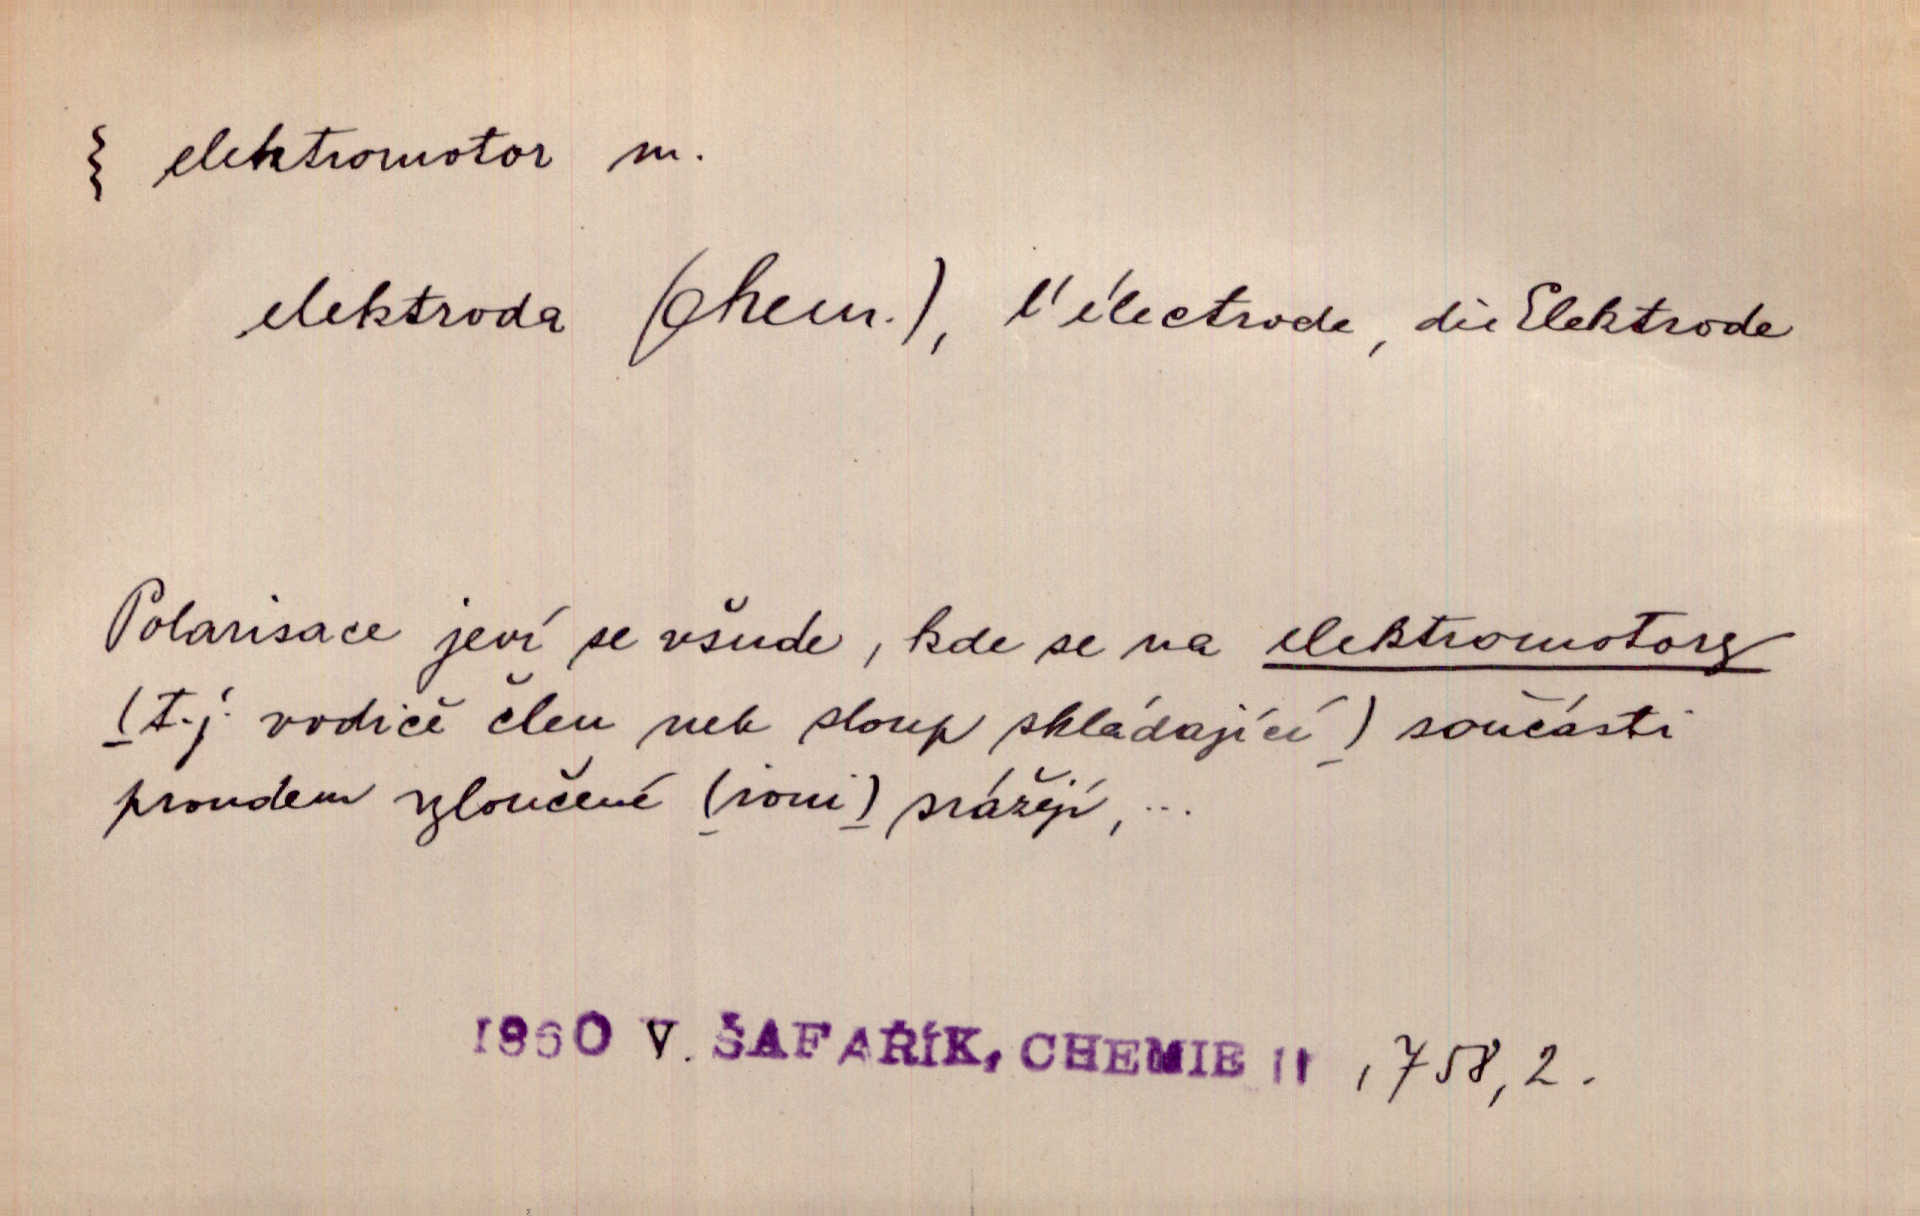 elektromotor m.
elektroda (chem.), l'électrode, die Elektrode
Polarisace jeví se všude, kde se na elektromotory
(t.j. vodiče člen neb sloup skládající) součásti
proudem zloučené (ioni) srážejí, ...
1860 V. ŠAFAŘÍK, CHEMIE II, 758, 2.